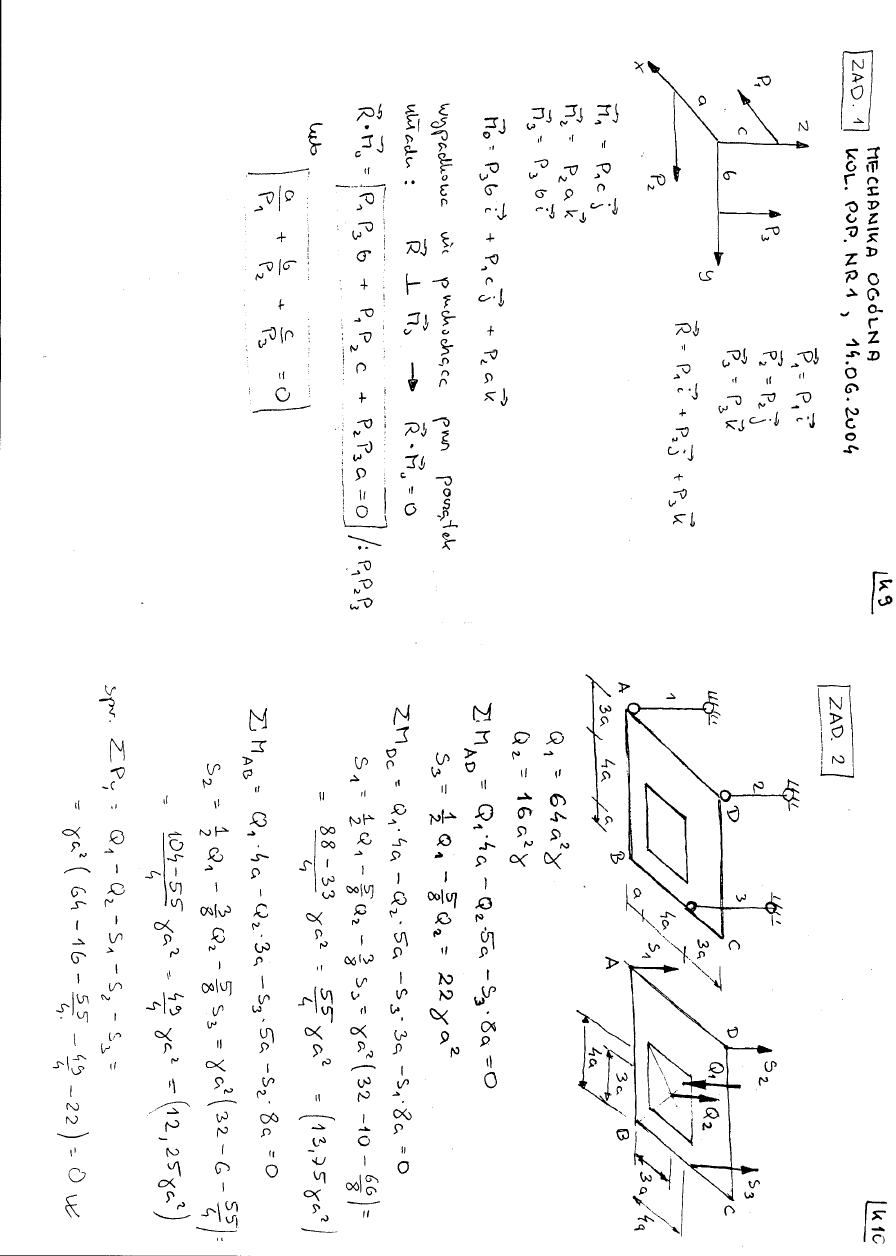 MECHANIKA OGÓLNA
KOL. POP. NR 1, 14.06.2004
k9
ZAD. 1
z
P₁
c
b
P₃
y
a
x
P₂
P⃗₁ = P₁i⃗
P⃗₂ = P₂j⃗
P⃗₃ = P₃k⃗
R⃗ = P₁i⃗ + P₂j⃗ + P₃k⃗
M⃗₁ = P₁cj⃗
M⃗₂ = P₂ak⃗
M⃗₃ = P₃bi⃗
M⃗₀ = P₃bi⃗ + P₁cj⃗ + P₂ak⃗
wypadkowa nie przechodząca przez początek
układu: R⃗ ⊥ M⃗₀ → R⃗·M⃗₀ = 0
R⃗·M⃗₀ = P₁P₃b + P₁P₂c + P₂P₃a = 0 /: P₁P₂P₃
lub
a/P₁ + b/P₂ + c/P₃ = 0
k10
ZAD. 2
1
2
3
A
D
B
C
3a
4a
a
a
4a
3a
S₁
S₂
Q₁
Q₂
S₃
A
D
B
C
3a
4a
3a
4a
Q₁ = 64a²γ
Q₂ = 16a²γ
ΣM_AD = Q₁·4a - Q₂·5a - S₃·8a = 0
S₃ = ½ Q₁ - ⅝ Q₂ = 22γa²
ΣM_DC = Q₁·4a - Q₂·5a - S₃·3a - S₁·8a = 0
S₁ = ½ Q₁ - ⅝ Q₂ - ⅜ S₃ = γa²(32 - 10 - 66/8) =
= (88 - 33)/4 γa² = 55/4 γa² = (13,75γa²)
ΣM_AB = Q₁·4a - Q₂·3a - S₃·5a - S₂·8a = 0
S₂ = ½ Q₁ - ⅜ Q₂ - ⅝ S₃ = γa²(32 - 6 - 55/4) =
= (104 - 55)/4 γa² = 49/4 γa² = (12,25γa²)
spr. ΣPy = Q₁ - Q₂ - S₁ - S₂ - S₃ =
= γa²(64 - 16 - 55/4 - 49/4 - 22) = 0